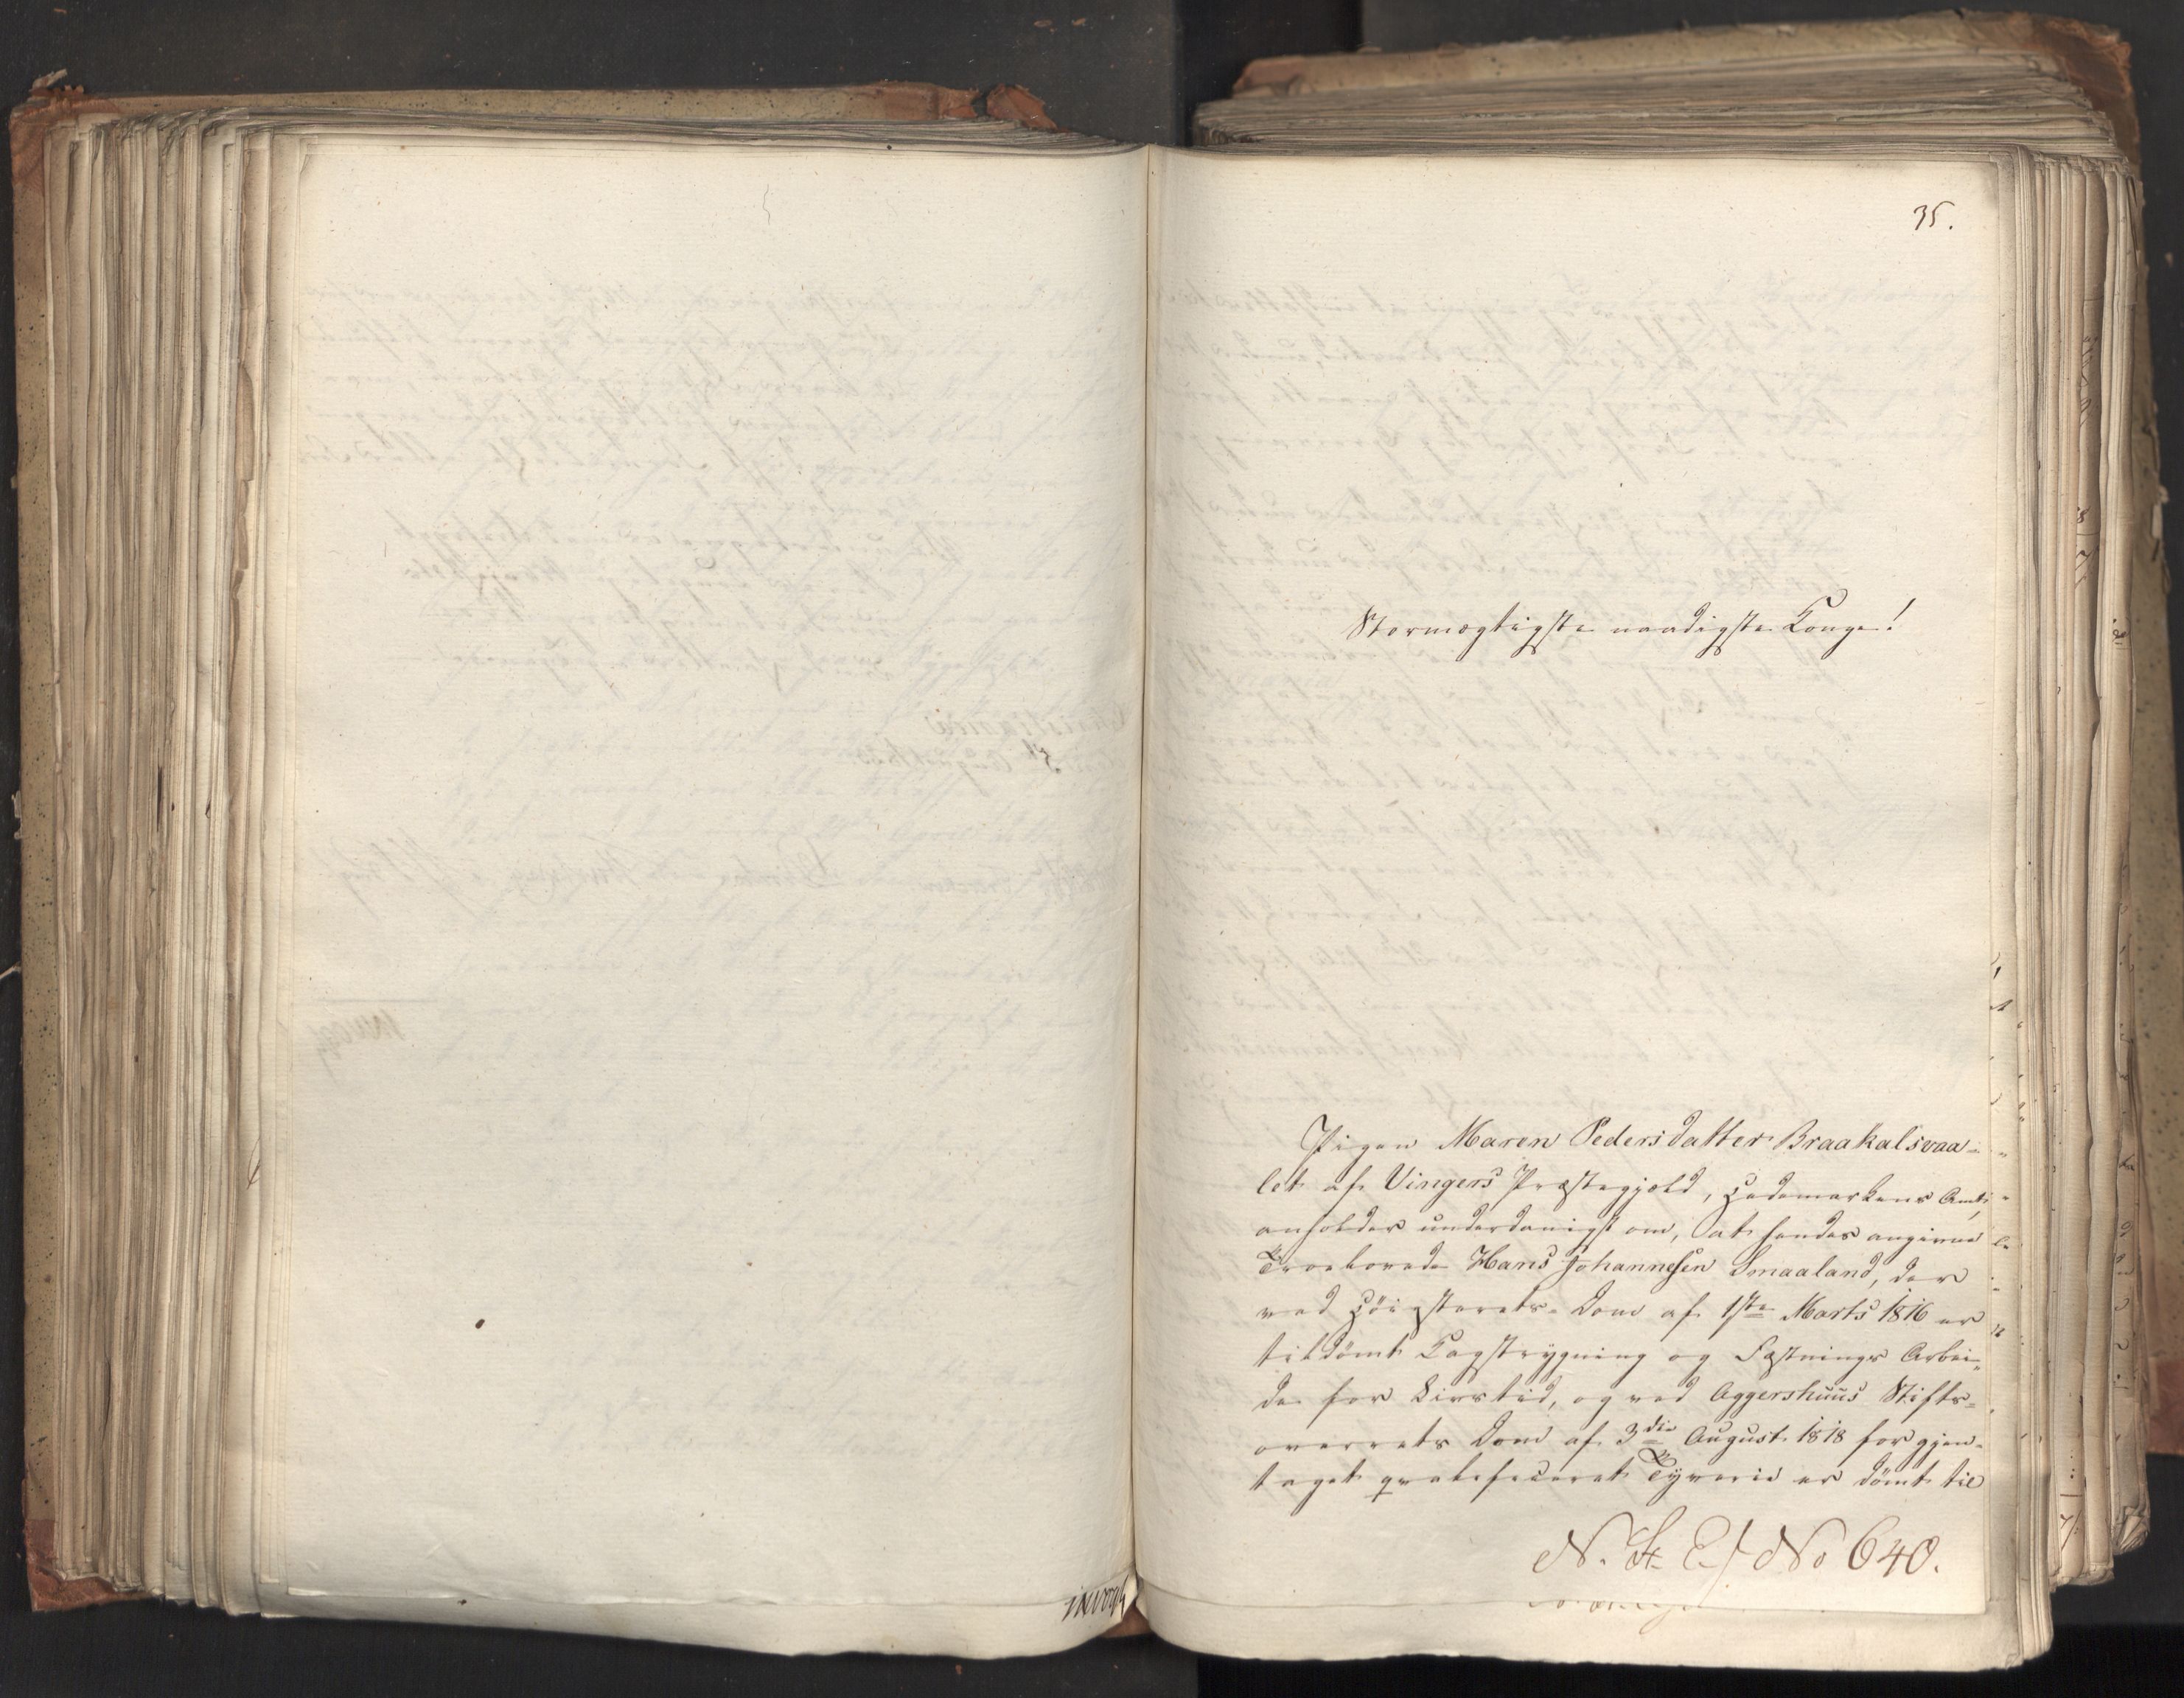 35.
Stormægtigste naadigste Konge!
Pigen Maren Pedersdatter Braakalsvaa-
let af Vingers Præstegjæld, Hedemarkens Amt,
anholder underdanigst om, at hendes angivne
Troelovede Hans Johannesen Smaaland, der
ved Höiesterets-Dom af 1ste Marts 1816 er
tildömt Kagstrygning og Fæstnings Arbei-
de for Livstid, og ved Aggershuus Stifts-
overrets Dom af 3die August 1818 for gjen-
taget qvalificeret Tyverie er dömt til
N. St. E. No 640.